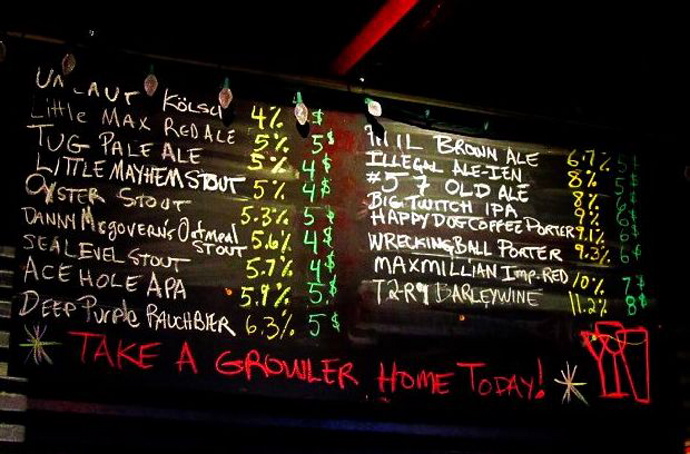 Kölsch 4% $
Little Max Red Ale 5% 5$
Tug Pale Ale 5% 4$
Little Mayhem Stout 5% 4$
Oyster Stout 5.3% 5$
Danny McGovern's Oatmeal Stout 5.6% 4$
Sea Level Stout 5.7% 4$
Ace Hole APA 5.9% 5$
Deep Purple Rauchbier 6.3% 5$
Brown Ale 6.7% 5$
Illegal Ale-ien 8% 5$
Old Ale 8% 6$
Big Twitch IPA 9% 6$
Happy Dog Coffee Porter 9.1% 6$
Wrecking Ball Porter 9.3% 6$
Maxmillian Imp. Red 10% 7$
T2-R9 Barleywine 11.2% 8$
Take A Growler Home Today!